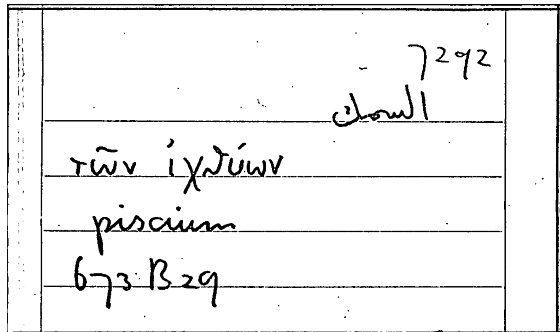 7292
السمك
τῶν ἰχθύων
piscium
673 B 29